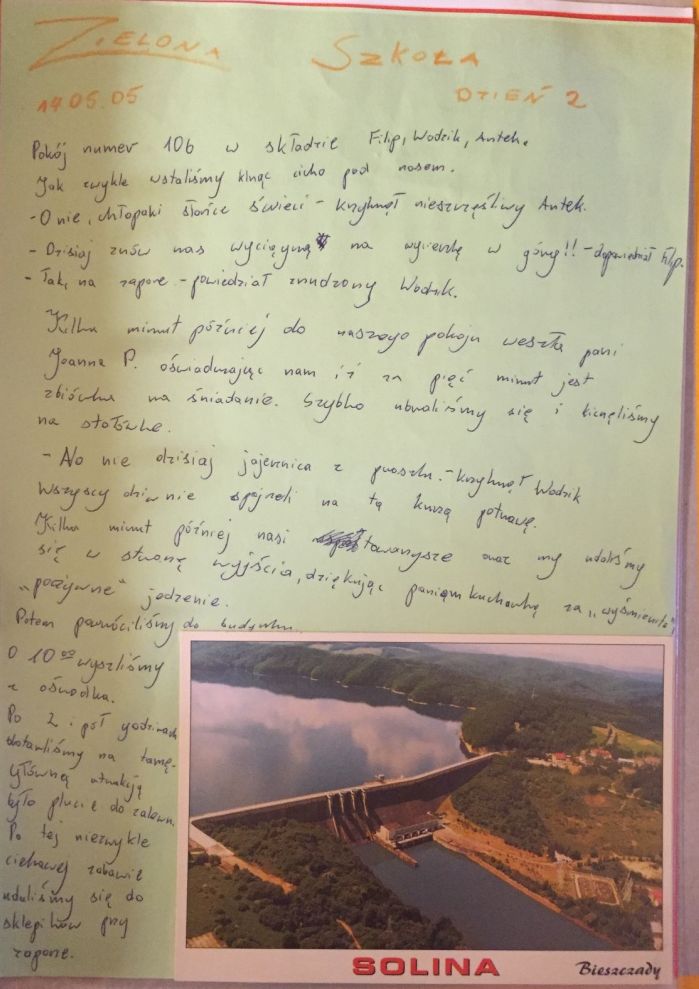 ZIELONA SZKOŁA
14.05.05 DZIEŃ 2
Pokój numer 106 w składzie Filip, Wodzik, Antek.
Jak zwykle wstaliśmy klnąc cicho pod nosem.
- O nie, chłopaki słońce świeci - krzyknął nieszczęśliwy Antek.
- Dzisiaj znów nas wyciągną na wycieczkę w góry!! - dopowiedział Filip.
- Tak, na zaporę - powiedział znudzony Wodzik.
Kilka minut później do naszego pokoju weszła pani
Joanna P. oświadczając nam iż za pięć minut jest
zbiórka na śniadanie. Szybko ubraliśmy się i kicnęliśmy
na stołówkę.
- No nie dzisiaj jajecznica z proszku. - krzyknął Wodzik
Wszyscy dziwnie spojrzeli na tą kurzą potrawę.
Kilka minut później nasi towarzysze oraz my udaliśmy
się w stronę wyjścia, dziękując paniąm kucharką za „wyśmienite"
„pożywne" jedzenie.
Potem powróciliśmy do budynku.
O 10⁰⁰ wyszliśmy
z ośrodka.
Po 2 i pół godzinach
dotarliśmy na tamę.
Główną atrakcją
było plucie do zalewu.
Po tej niezwykle
ciekawej zabawie
udaliśmy się do
sklepików przy
zaporze.
SOLINA
Bieszczady